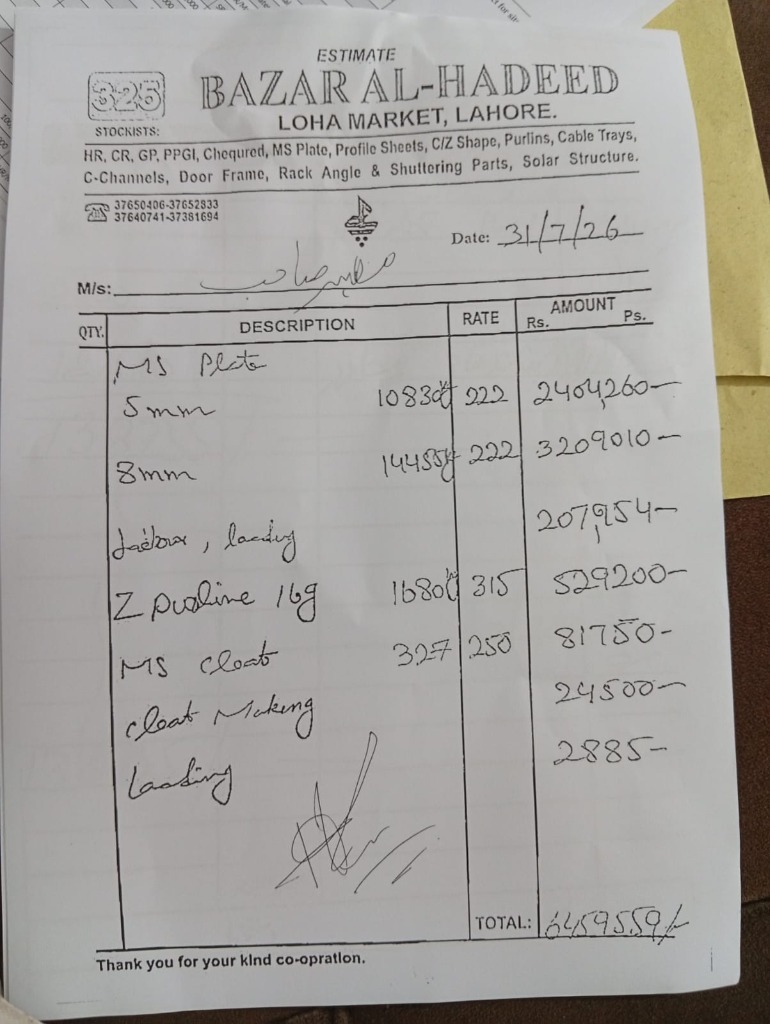 ESTIMATE
325 BAZAR AL-HADEED
LOHA MARKET, LAHORE.
STOCKISTS:
HR, CR, GP, PPGI, Chequred, MS Plate, Profile Sheets, C/Z Shape, Purlins, Cable Trays,
C-Channels, Door Frame, Rack Angle & Shuttering Parts, Solar Structure.
37650406-37652833
37640741-37381694
Date: 31/7/26
M/s: صاحب
QTY. DESCRIPTION RATE AMOUNT
Rs. Ps.
MS Plate
5mm 10830 222 2404,260-
8mm 14455 222 3209010-
loading 207,954-
Z 16g 1680 315 529200-
MS cleat 327 250 81750-
cleat Making 24500-
Loading 2885-
TOTAL: 6459559/-
Thank you for your kind co-opration.